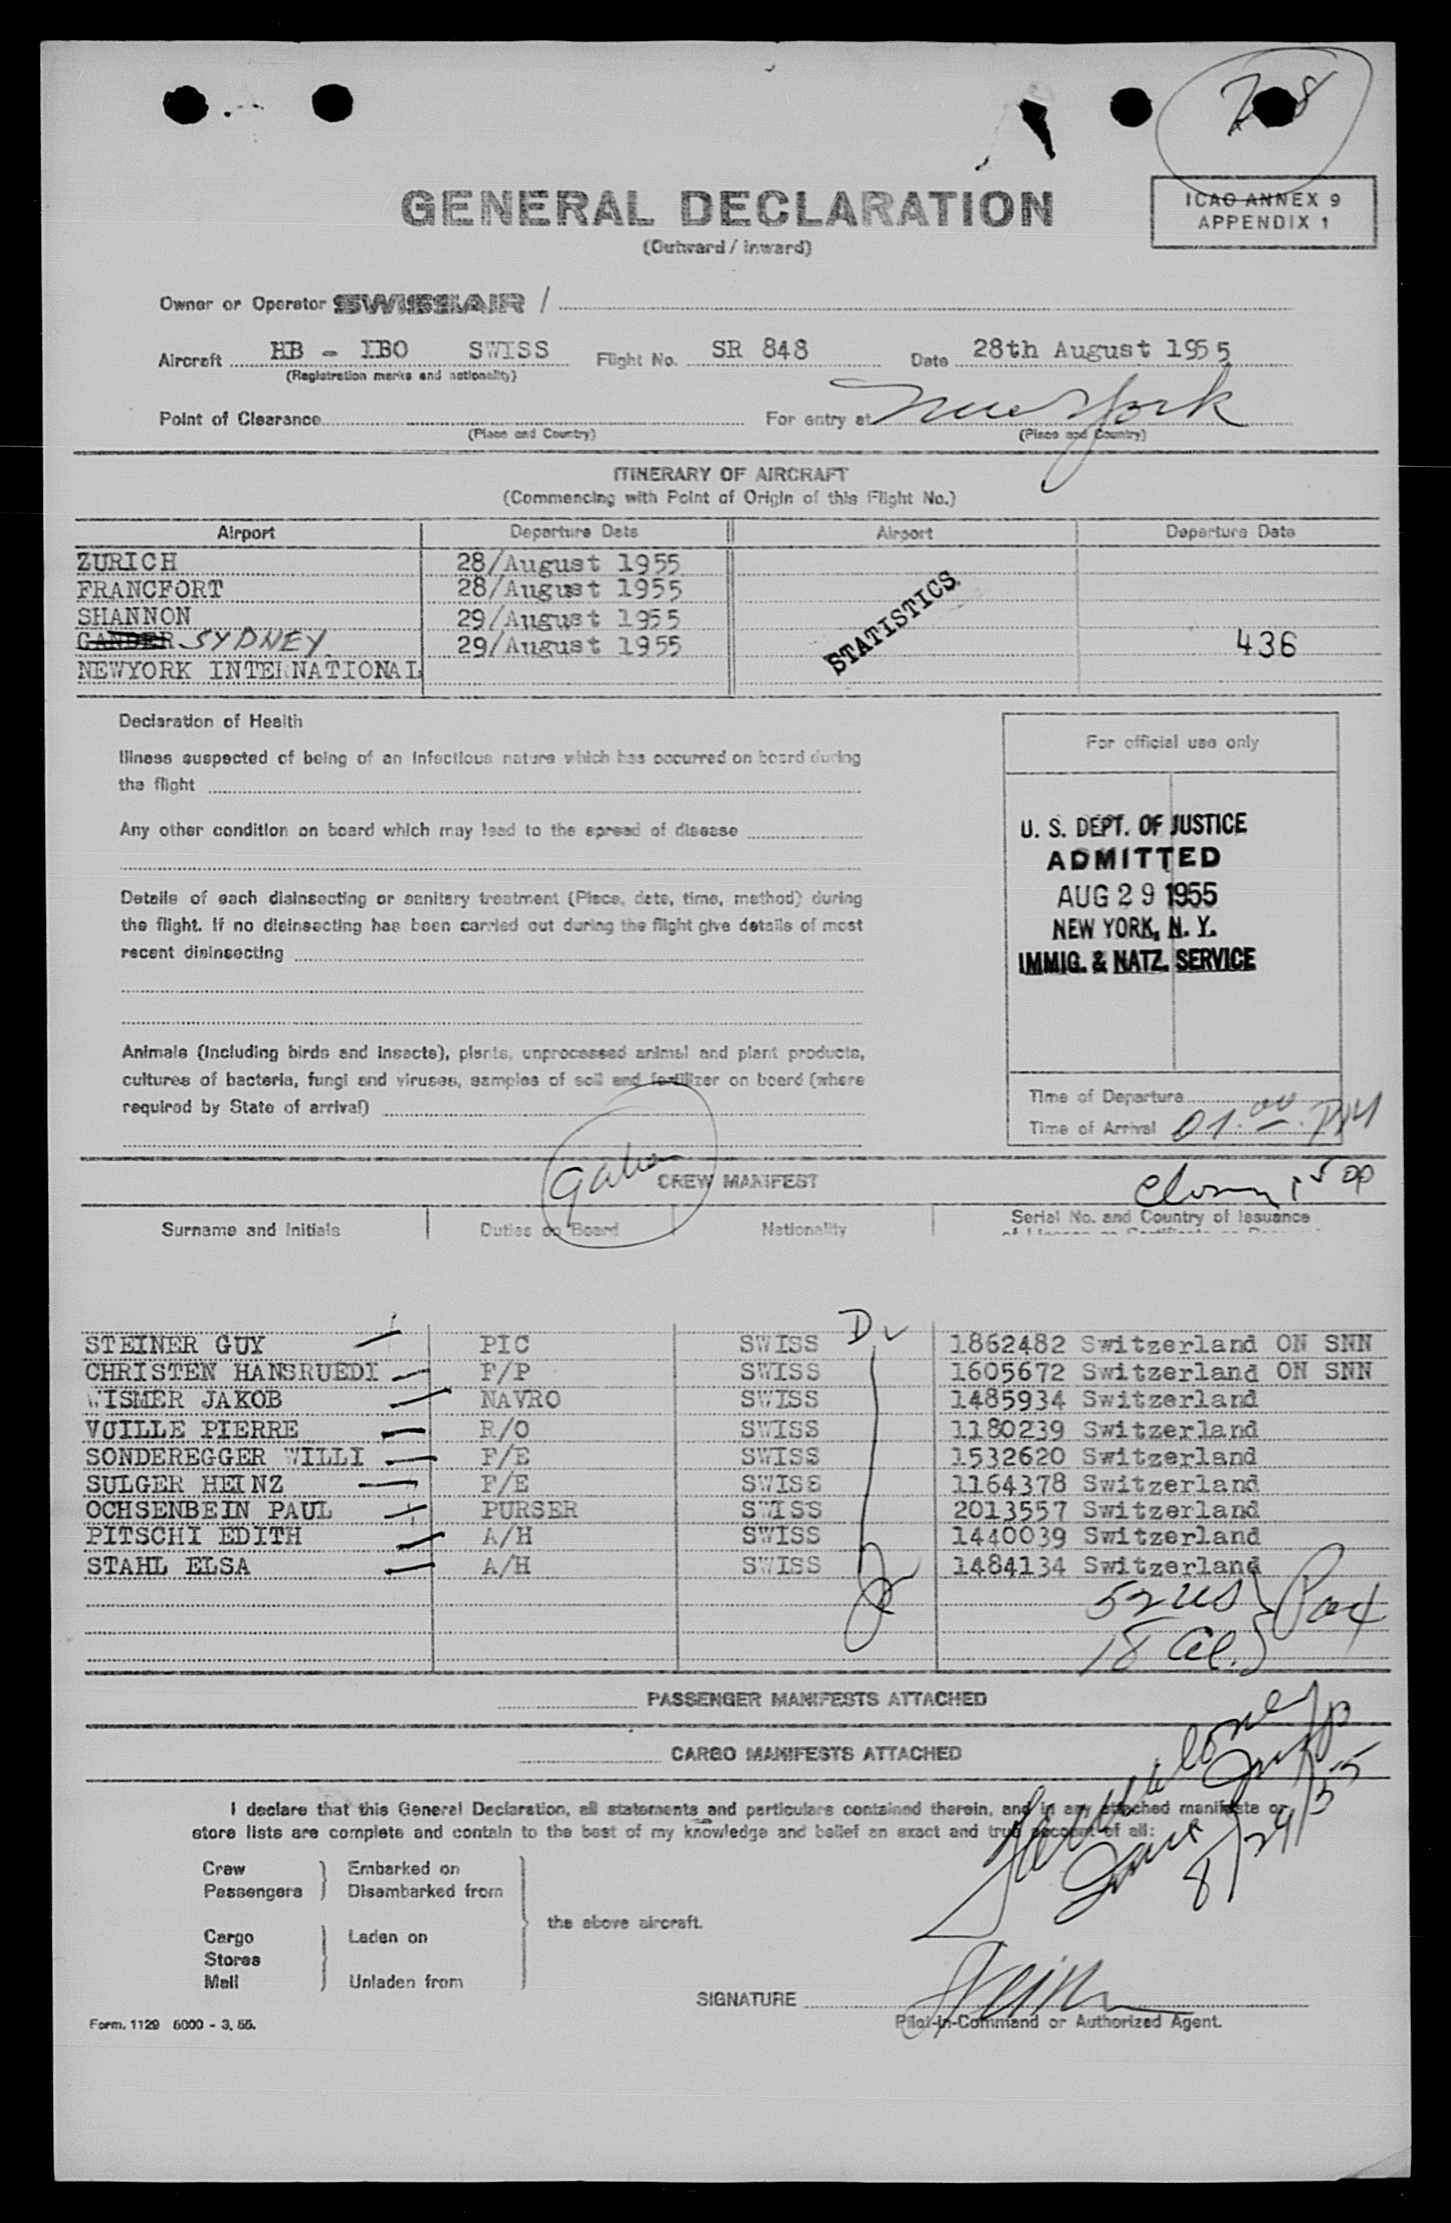 GENERAL DECLARATION
(Outward / Inward)
ICAO ANNEX 9
APPENDIX 1
Owner or Operator SWISSAIR /
Aircraft HB - IBO SWISS Flight No. SR 848 Date 28th August 1955
(Registration marks and nationality)
Point of Clearance For entry at New York
(Place and Country) (Place and Country)
ITINERARY OF AIRCRAFT
(Commencing with Point of Origin of this Flight No.)
Airport Departure Date Airport Departure Date
ZURICH 28/August 1955
FRANCFORT 28/August 1955
SHANNON 29/August 1955
GANDER SYDNEY 29/August 1955
NEWYORK INTERNATIONAL
STATISTICS
436
Declaration of Health
Illness suspected of being of an infectious nature which has occurred on board during
the flight
Any other condition on board which may lead to the spread of disease
Details of each disinsecting or sanitary treatment (Place, date, time, method) during
the flight. If no disinsecting has been carried out during the flight give details of most
recent disinsecting
Animals (including birds and insects), plants, unprocessed animal and plant products,
cultures of bacteria, fungi and viruses, samples of soil and fertilizer on board (where
required by State of arrival)
For official use only
U. S. DEPT. OF JUSTICE
ADMITTED
AUG 29 1955
NEW YORK, N. Y.
IMMIG. & NATZ. SERVICE
Time of Departure
Time of Arrival 01.00 PM
CREW MANIFEST
Surname and Initials Duties on Board Nationality Serial No. and Country of Issuance
STEINER GUY PIC SWISS 1862482 Switzerland ON SNN
CHRISTEN HANSRUEDI F/P SWISS 1605672 Switzerland ON SNN
WISMER JAKOB NAVRO SWISS 1485934 Switzerland
VUILLE PIERRE R/O SWISS 1180239 Switzerland
SONDEREGGER WILLI F/E SWISS 1532620 Switzerland
SULGER HEINZ F/E SWISS 1164378 Switzerland
OCHSENBEIN PAUL PURSER SWISS 2013557 Switzerland
PITSCHI EDITH A/H SWISS 1440039 Switzerland
STAHL ELSA A/H SWISS 1484134 Switzerland
52 US
18 al. Pax
PASSENGER MANIFESTS ATTACHED
CARGO MANIFESTS ATTACHED
I declare that this General Declaration, all statements and particulars contained therein, and in any attached manifests or
store lists are complete and contain to the best of my knowledge and belief an exact and true account of all:
8/29/55
Crew Embarked on
Passengers Disembarked from
the above aircraft.
Cargo Laden on
Stores
Mail Unladen from
SIGNATURE
Pilot-in-Command or Authorized Agent.
Form. 1129 5000 - 3. 55.